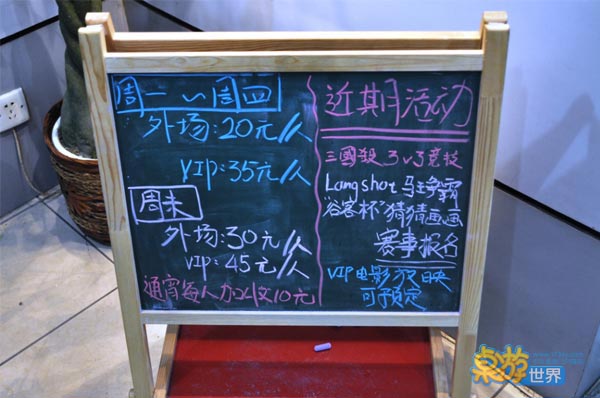 周一~周四
外场:20元/人
VIP:35元/人
周末
外场:30元/人
VIP:45元/人
通宵每人加收10元
近期活动
三國殺 3v3竞技
Longshot 马王争霸
谷客杯"猜猜画画
赛事报名
VIP电影放映
可预定
桌游
世界